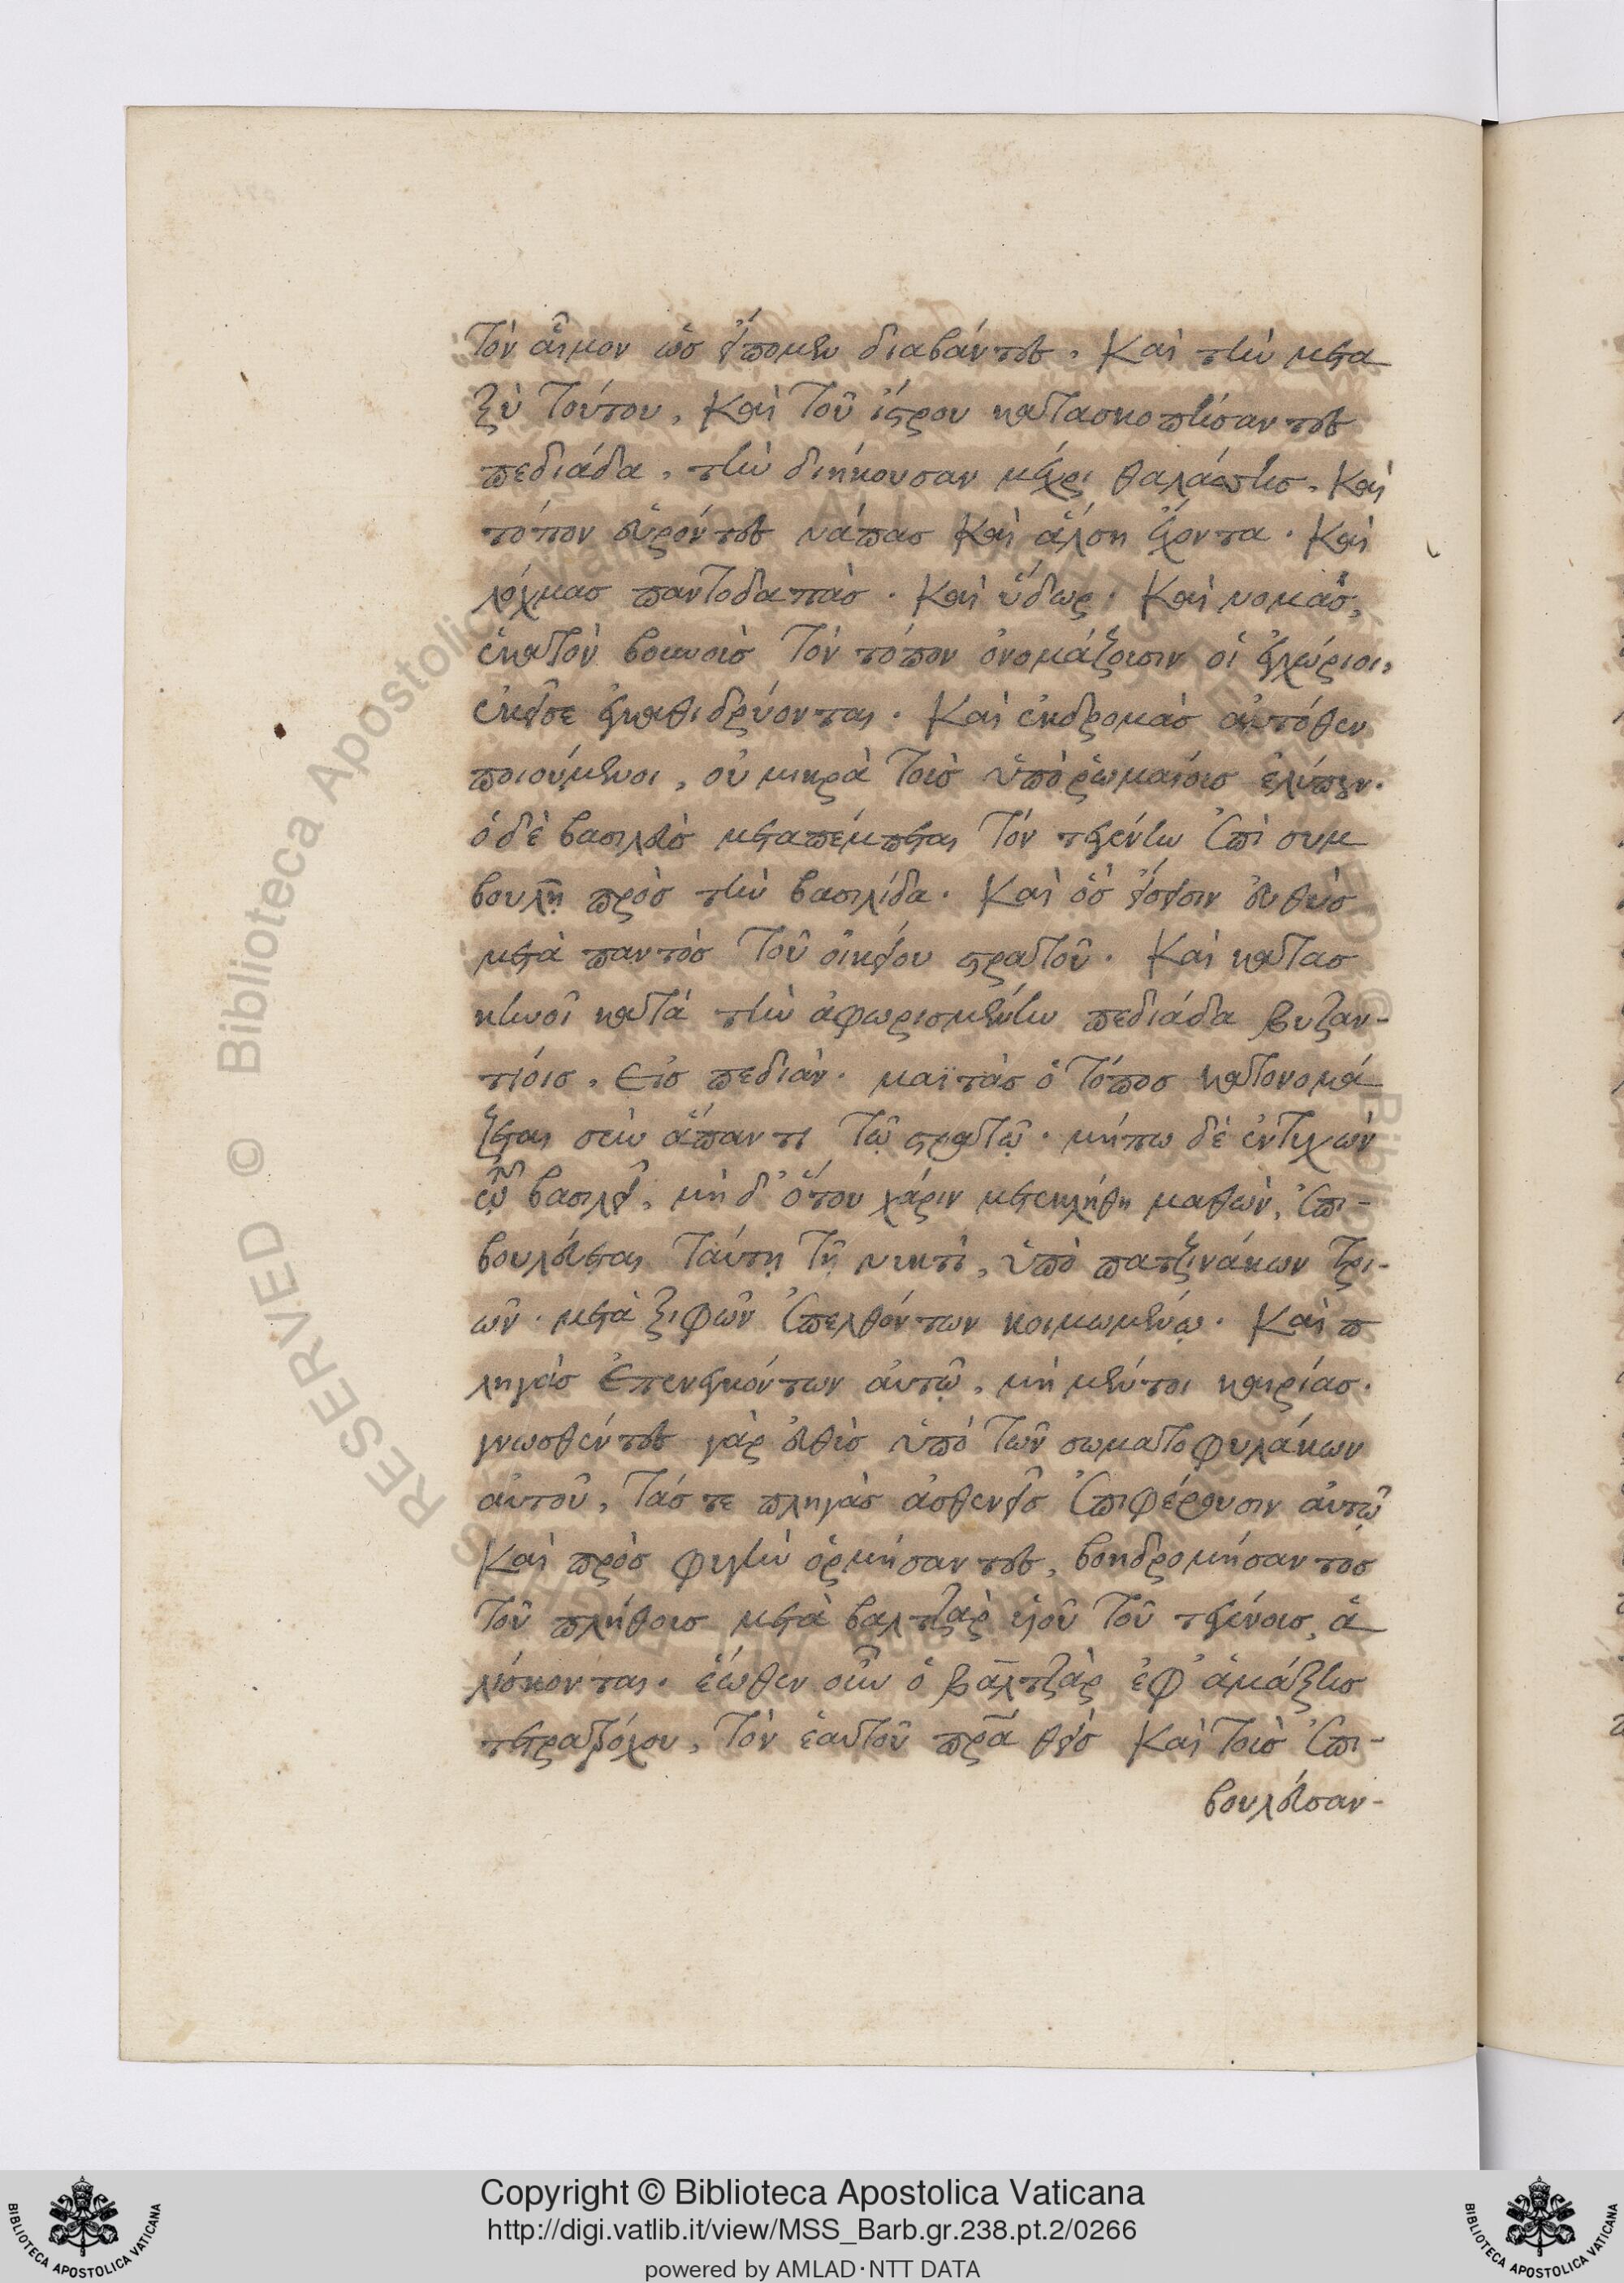 Τὸν αἷμον ὡσ εἴπομεν διαβάντεσ. Καὶ τὴν μετα
ξὺ τούτου, Καὶ τοῦ ἴστρου κατασκοπήσαντεσ
πεδιάδα, τὴν διήκουσαν μέχρι θαλάσσησ. Καὶ
τόπον εὑρόντεσ νάπασ Καὶ ἄλση ἔχοντα. Καὶ
λόχμασ παντοδαπὰσ. Καὶ ὕδωρ. Καὶ νομὰσ,
ἑκατὸν βουνοὺσ Τὸν τόπον ὀνομάζουσιν οἱ ἐγχώριοι,
ἐκεῖσε ἐγκαθιδρύονται. Καὶ ἐκδρομὰσ αὐτόθεν
ποιούμενοι, οὐ μικρὰ τοὺσ ὑπὸ ῥωμαίουσ ἐλύπουν.
ὁ δὲ βασιλεὺσ μεταπέμπεται Τὸν τζένην ἐπὶ συμ
βουλῇ πρὸσ τὴν βασιλίδα. Καὶ ὃσ εἴσεισιν εὐθὺσ
μετὰ παντὸσ Τοῦ οἰκείου στρατοῦ. Καὶ κατασ
κηνοῖ κατὰ τὴν ἀφωρισμένην πεδιάδα βυζαν-
τίοισ. εἰσ πεδιὰν. μαϊτὰσ ὁ τόποσ κατονομά
ζεται σὺν ἅπαντι τῷ στρατῷ. μήπω δὲ ἐντυχὼν
τῷ βασιλεῖ, μὴ δ' ὅτου χάριν μετεκλήθη μαθὼν, ἐπι-
βουλεύεται Ταύτῃ τῇ νυκτὶ, ὑπὸ πατζινάκων τρι-
ῶν. μετὰ ξιφῶν ἐπελθόντων κοιμωμένῳ. Καὶ π
ληγὰσ ἐπενεγκόντων αὐτῷ, μὴ μέντοι καιρίασ.
γνωσθέντεσ γὰρ εὐθὺσ ὑπὸ τῶν σωματοφυλάκων
αὐτοῦ, Τάσ τε πληγὰσ ἀσθενεῖσ ἐπιφέρουσιν αὐτῷ
Καὶ πρὸσ φυγὴν ὁρμήσαντεσ, βοηδρομήσαντοσ
Τοῦ πλήθουσ μετὰ βαλτζὰρ υἱοῦ Τοῦ τζένουσ, ἁ
λίσκονται. ἕωθεν οὖν ὁ βαλτζὰρ ἐφ' ἁμάξησ
τετρατρόχου, Τὸν ἑαυτοῦ πρ̅α θεὶσ Καὶ Τοὺσ ἐπι-
βουλεύσαν-
Copyright © Biblioteca Apostolica Vaticana
http://digi.vatlib.it/view/MSS_Barb.gr.238.pt.2/0266
powered by AMLAD·NTT DATA